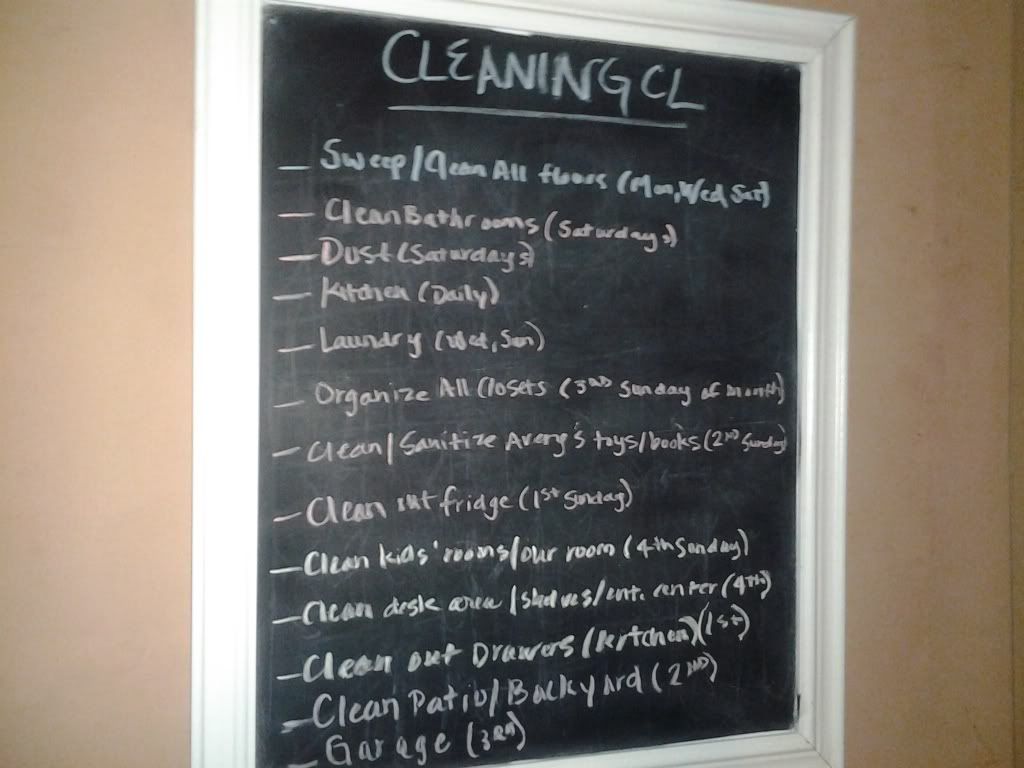 CLEANING CL
— Sweep/Clean All floors (Mon, Wed, Sat)
— Clean Bathrooms (Saturdays)
— Dust (Saturdays)
— Kitchen (Daily)
— Laundry (Wed, Sun)
— Organize All Closets (3RD Sunday of month)
— Clean/Sanitize Avery's toys/books (2ND Sunday)
— Clean out fridge (1st Sunday)
— Clean kids' rooms/our room (4th Sunday)
— Clean desk area/shelves/ent. center (4th)
— Clean out Drawers (kitchen) (1st)
— Clean Patio/Backyard (2ND)
— Garage (3RD)